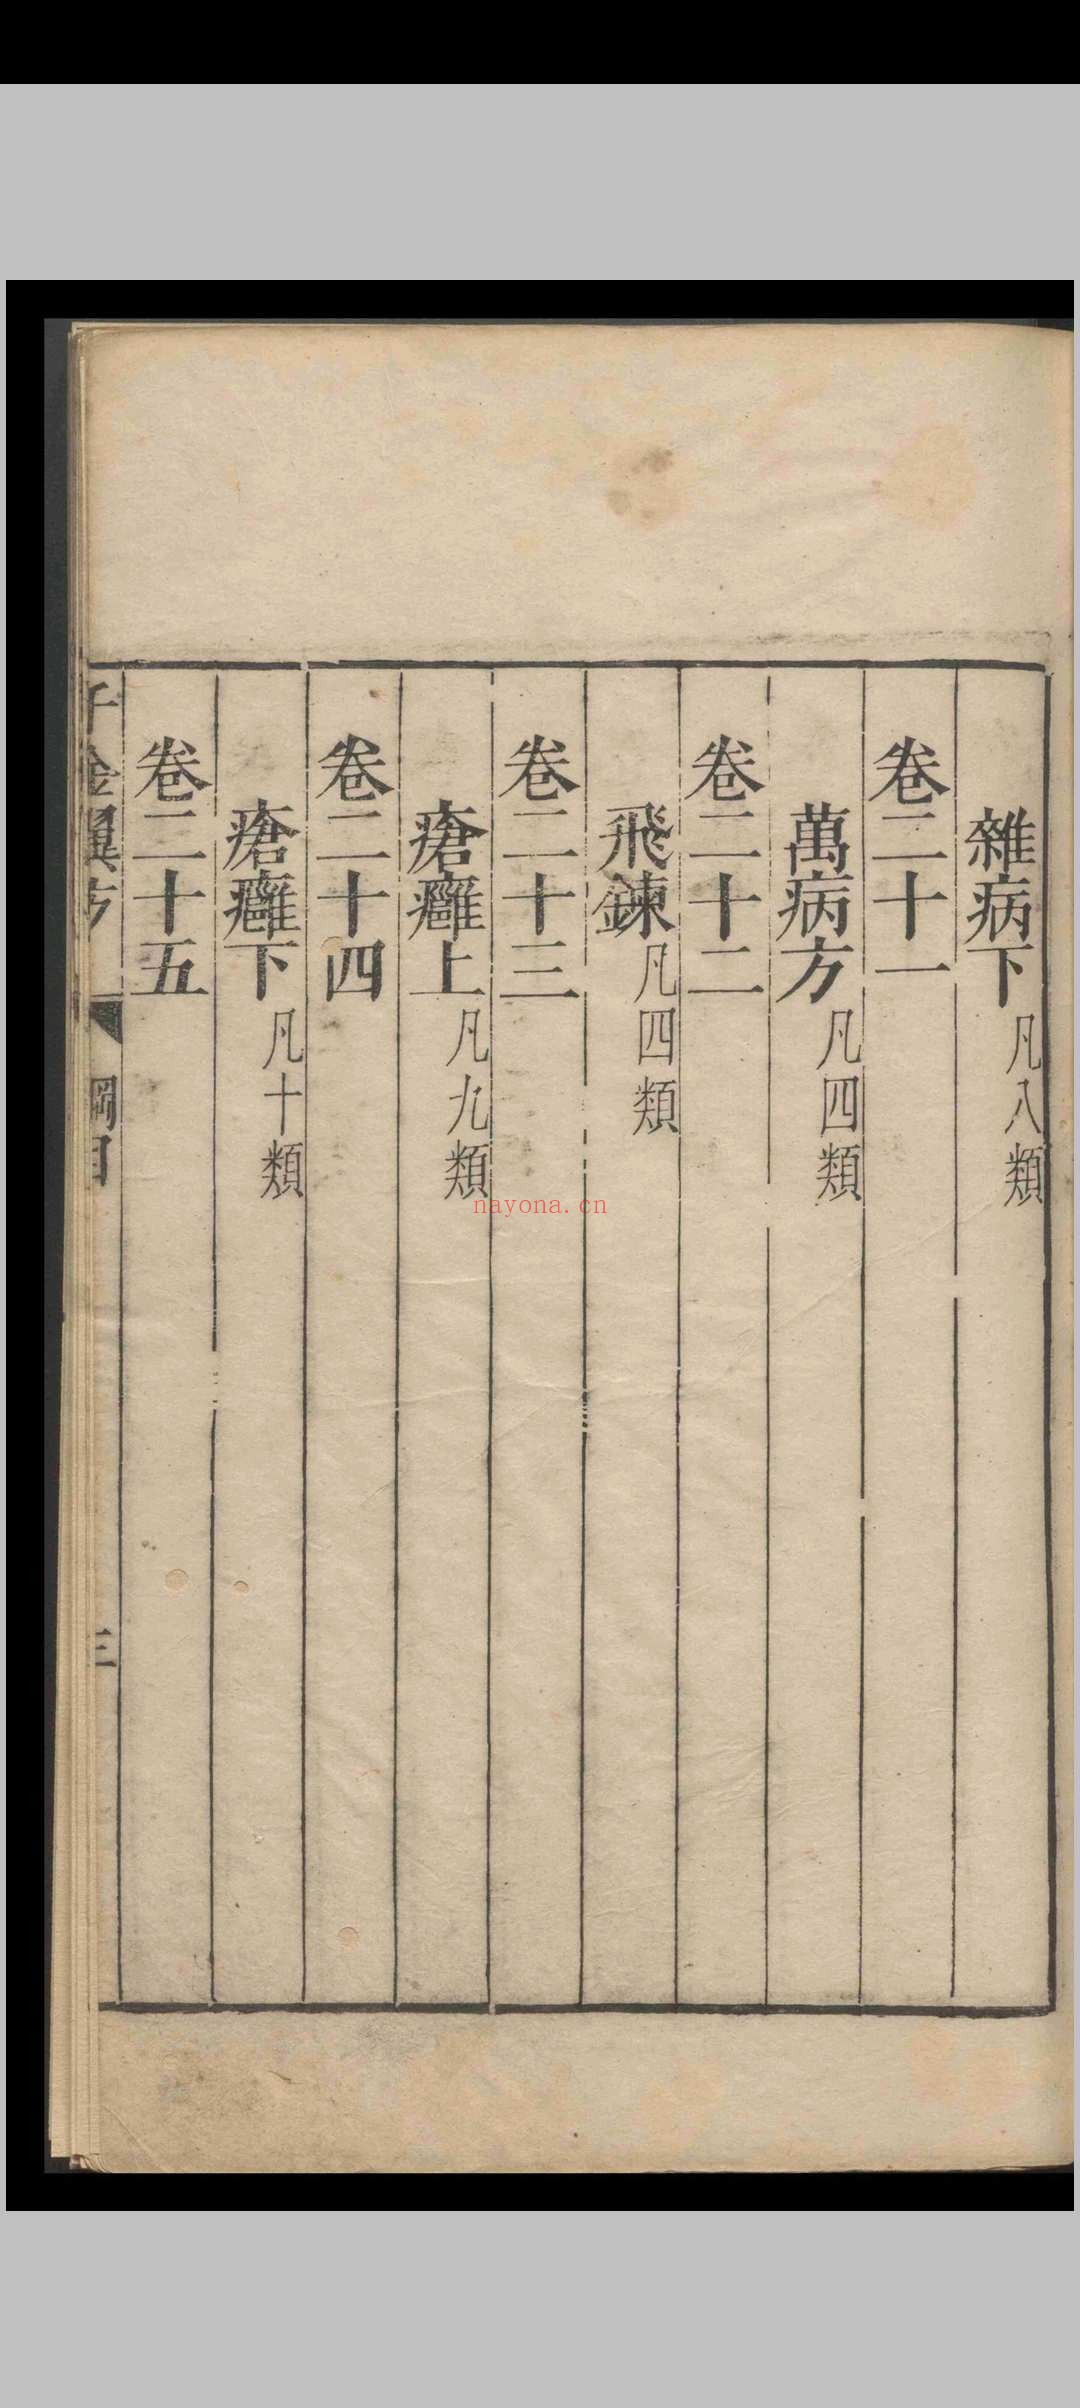 雜病下凡八類
卷二十一
萬病方凡四類
卷二十二
飛鍊凡四類
卷二十三
瘡癰上凡九類
卷二十四
瘡癰下凡十類
卷二十五
千金翼方 綱目 三
nayona.cn